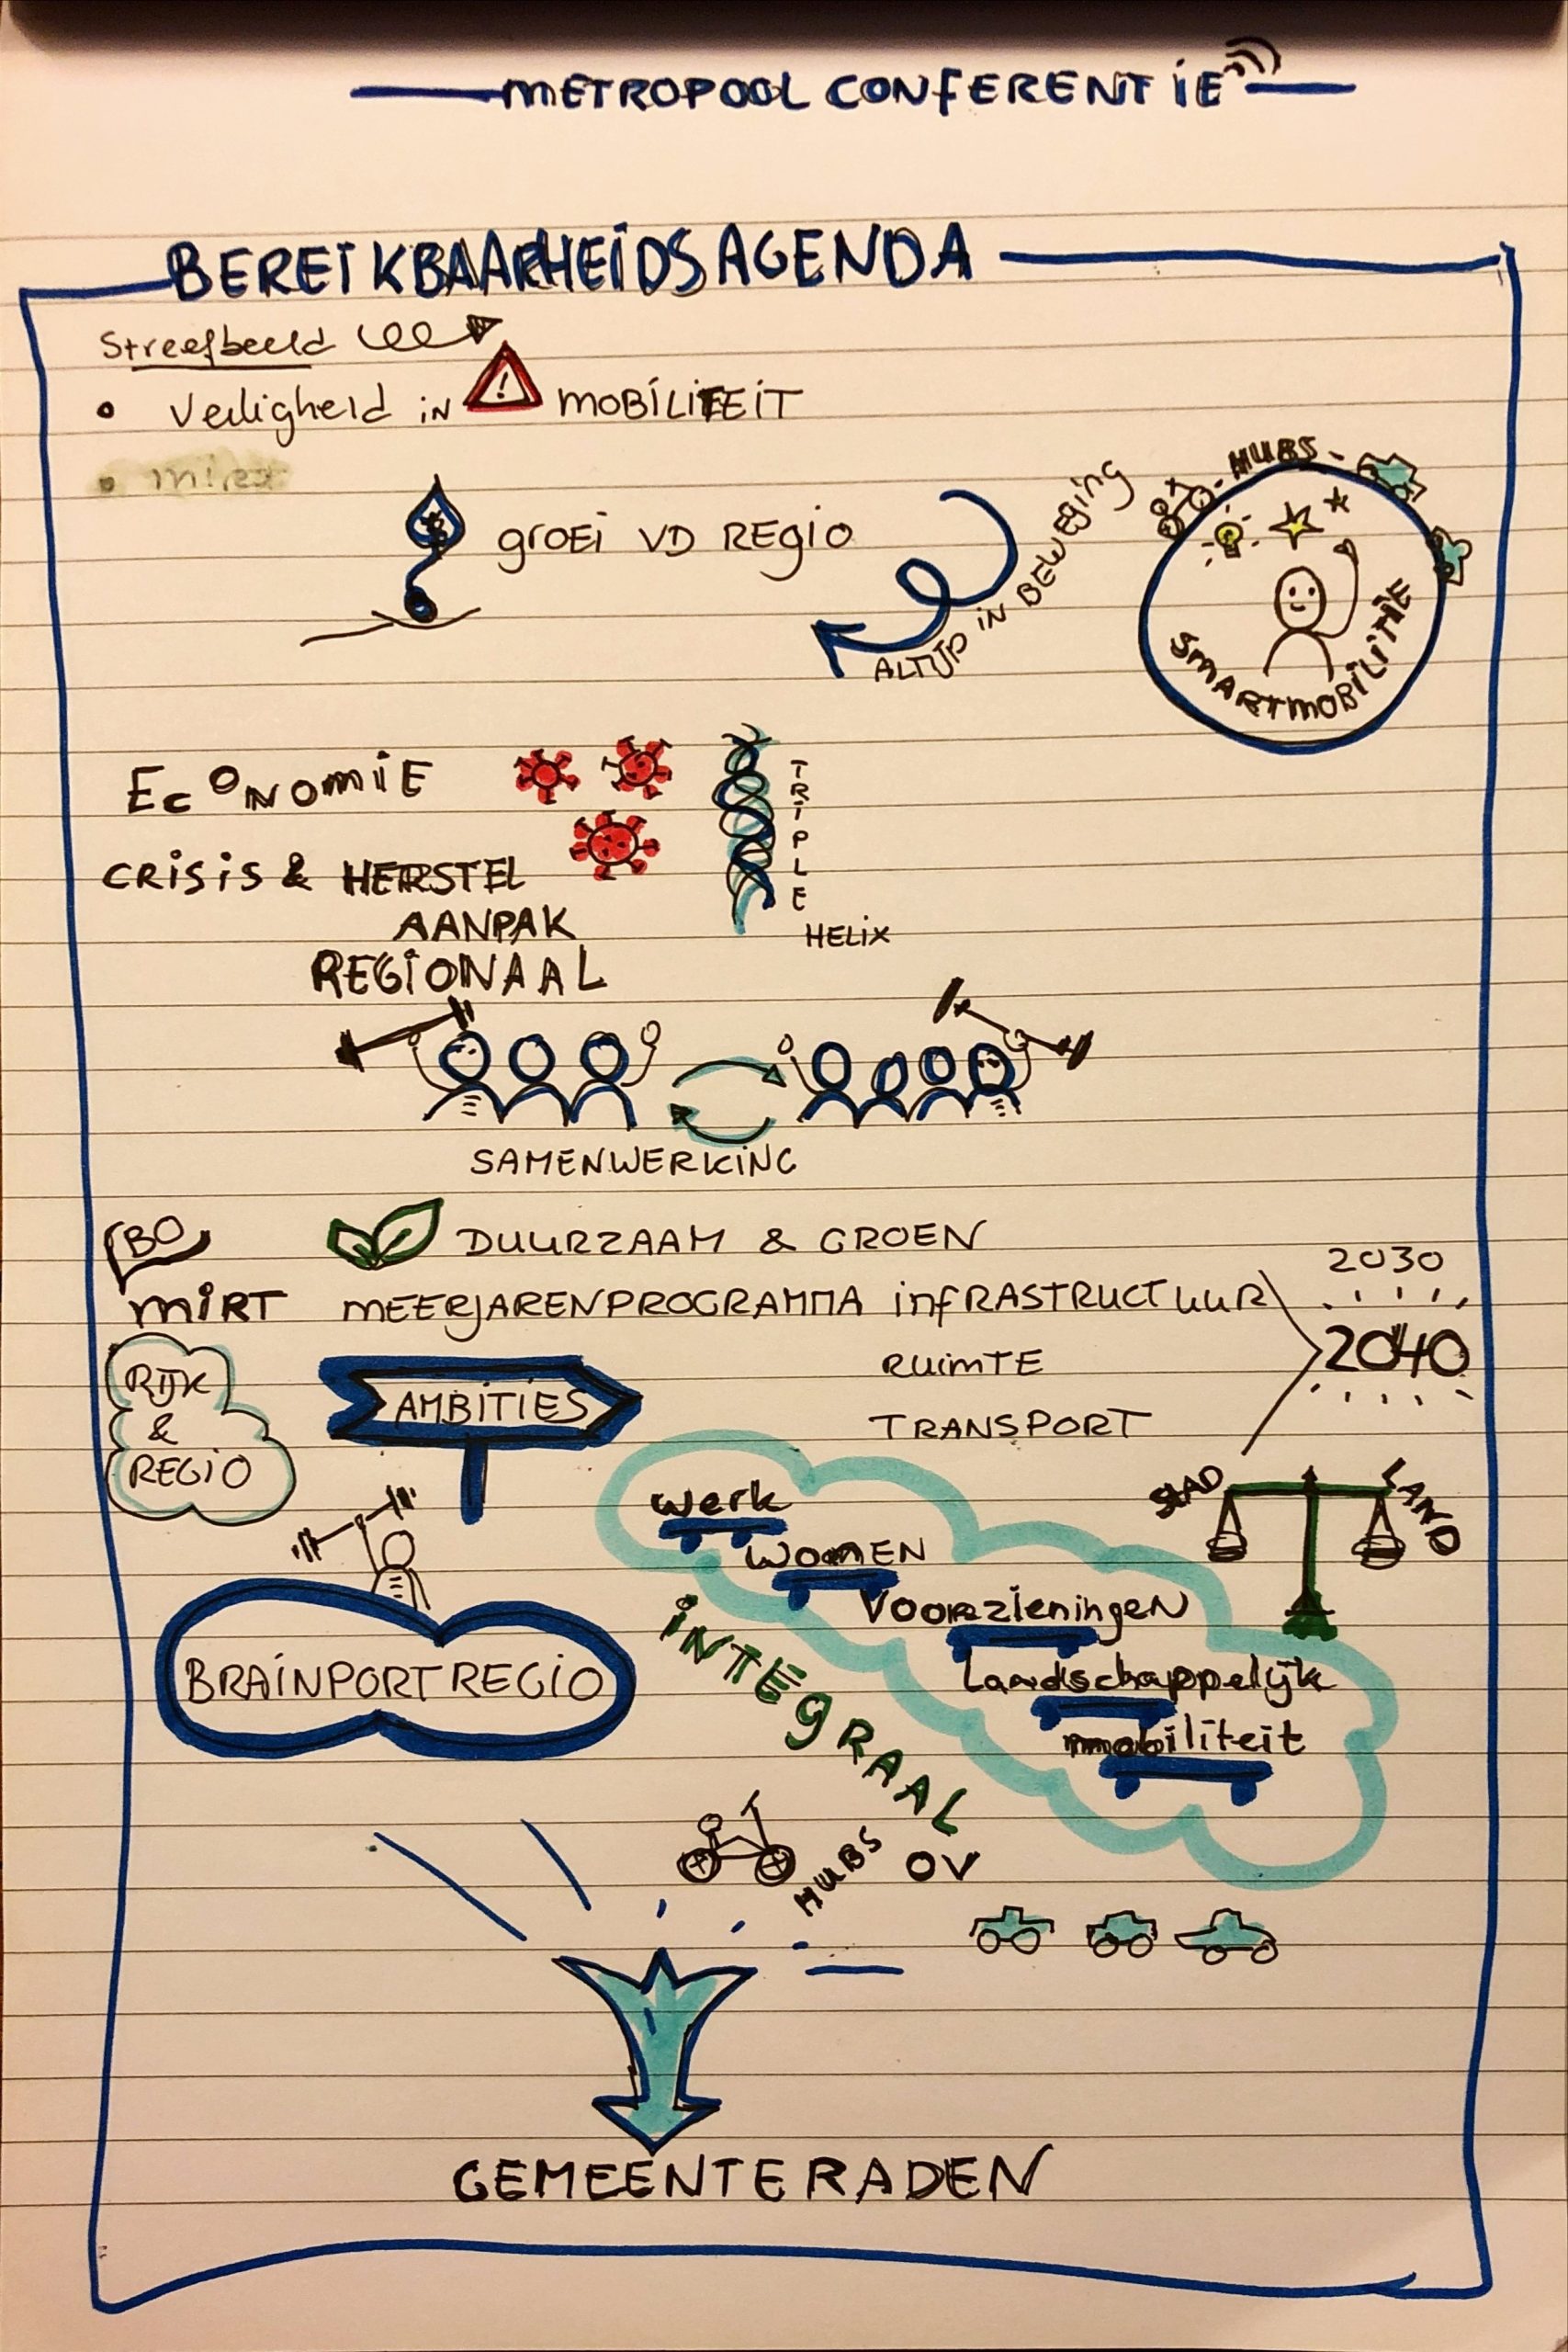 METROPOOL CONFERENTIE
BEREIKBAARHEIDSAGENDA
Streefbeeld
• Veiligheid in ! MOBILITEIT
groei VD REGIO
ALTIJD IN BEWEGING
- HUBS -
SMARTMOBILITIE
ECONOMIE
CRISIS & HERSTEL
AANPAK
REGIONAAL
TRIPLE
HELIX
SAMENWERKING
BO
MIRT
DUURZAAM & GROEN
MEERJARENPROGRAMMA INFRASTRUCTUUR
RUIMTE
TRANSPORT
2030
2040
RIJK
&
REGIO
AMBITIES
STAD
LAND
werk
WONEN
Voorzieningen
Landschappelijk
mobiliteit
INTEGRAAL
BRAINPORTREGIO
HUBS
OV
GEMEENTERADEN